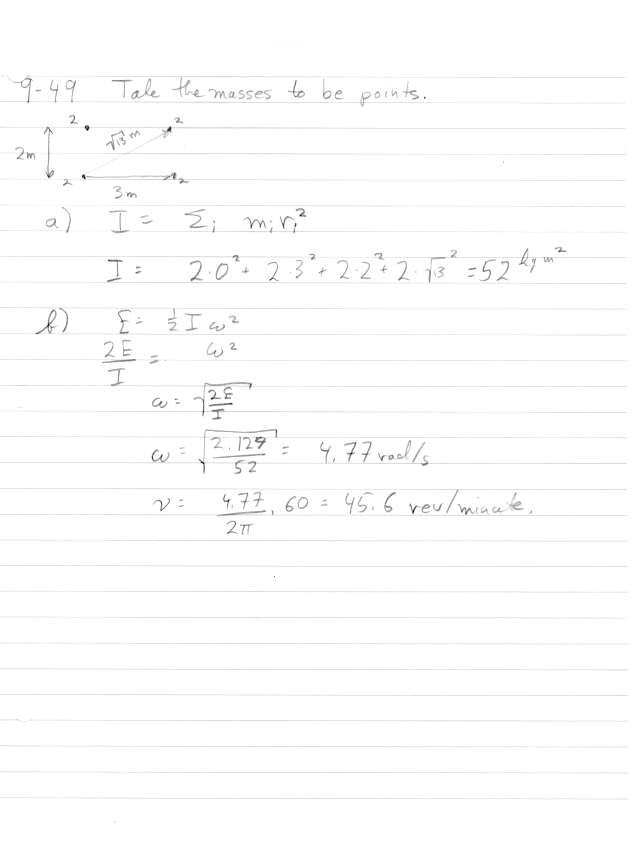 9-49 Take the masses to be points.
2 2
√13 m
2m
2 2
3m
a) I = Σi mi ri²
I = 2·0² + 2·3² + 2·2² + 2·√13² = 52 kg m²
b) E = ½ I ω²
2E/I = ω²
ω = √(2E/I)
ω = √(2·129/52) = 4.77 rad/s
ν = 4.77/2π · 60 = 45.6 rev/minute.